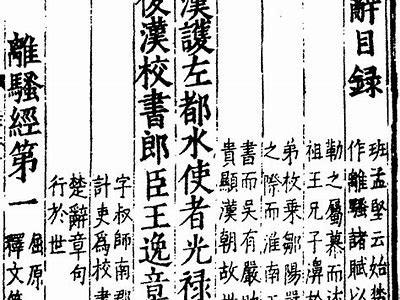 辭目録
班孟堅云始楚
作離騷諸賦以
勒之屬慕而
祖王兄子濞
弟枚乘鄒陽
之際而淮南
書而吳有嚴
貴顯漢朝故世
漢護左都水使者光禄
後漢校書郎臣王逸章
字叔師南郡
計吏爲校書
楚辭章句
行於世
離騷經第一
屈原
釋文第